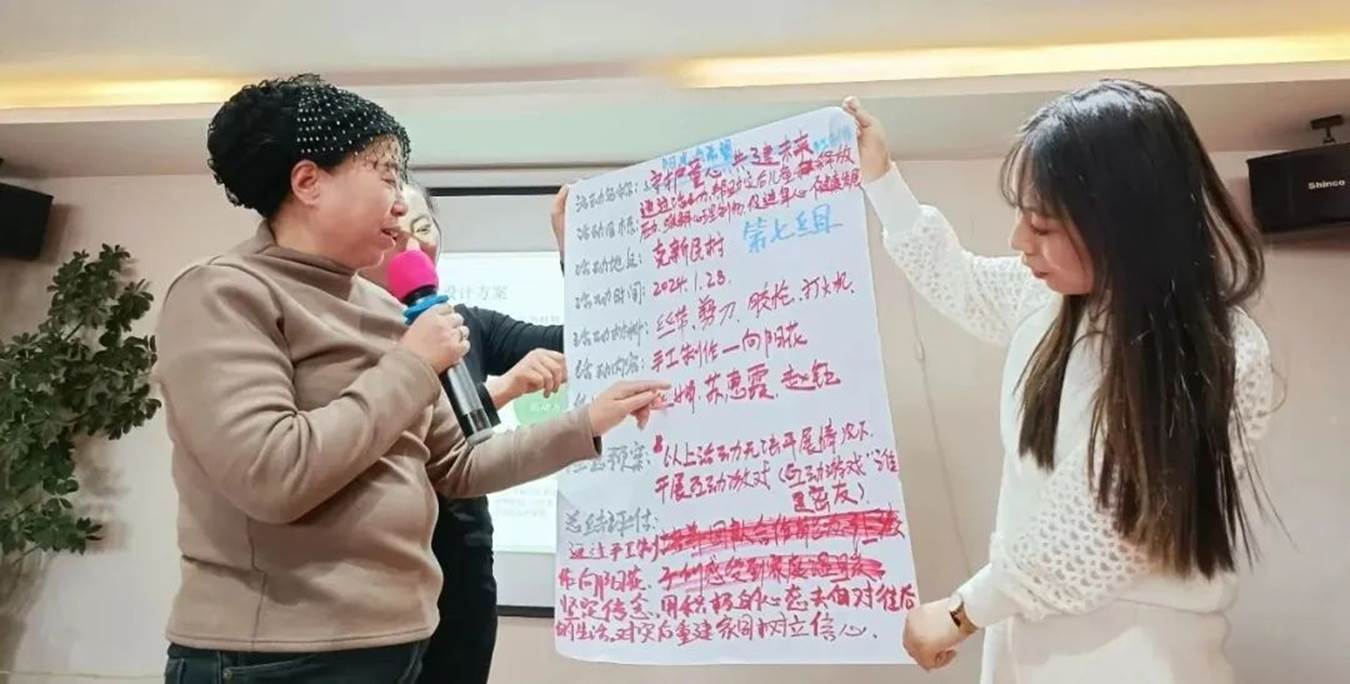 设计方案
Shinco
活动名称：守护童心 共建未来
活动目标：通过活动，帮助灾后儿童释放
压力，缓解心理创伤，促进身心健康发展
第七组
活动地点：克新民村
活动时间：2024.1.28.
活动材料：丝带、剪刀、胶枪、打火机，
活动内容：手工制作—向阳花
婷、苏惠霞、赵钰
应急预案：以上活动无法开展情况下，
开展互动游戏（互动游戏“谁
是密友）
总结评估：
通过手工制
作向阳花，
坚定信念，用积极的心态去面对往后
的生活，对灾后重建家园树立信心．